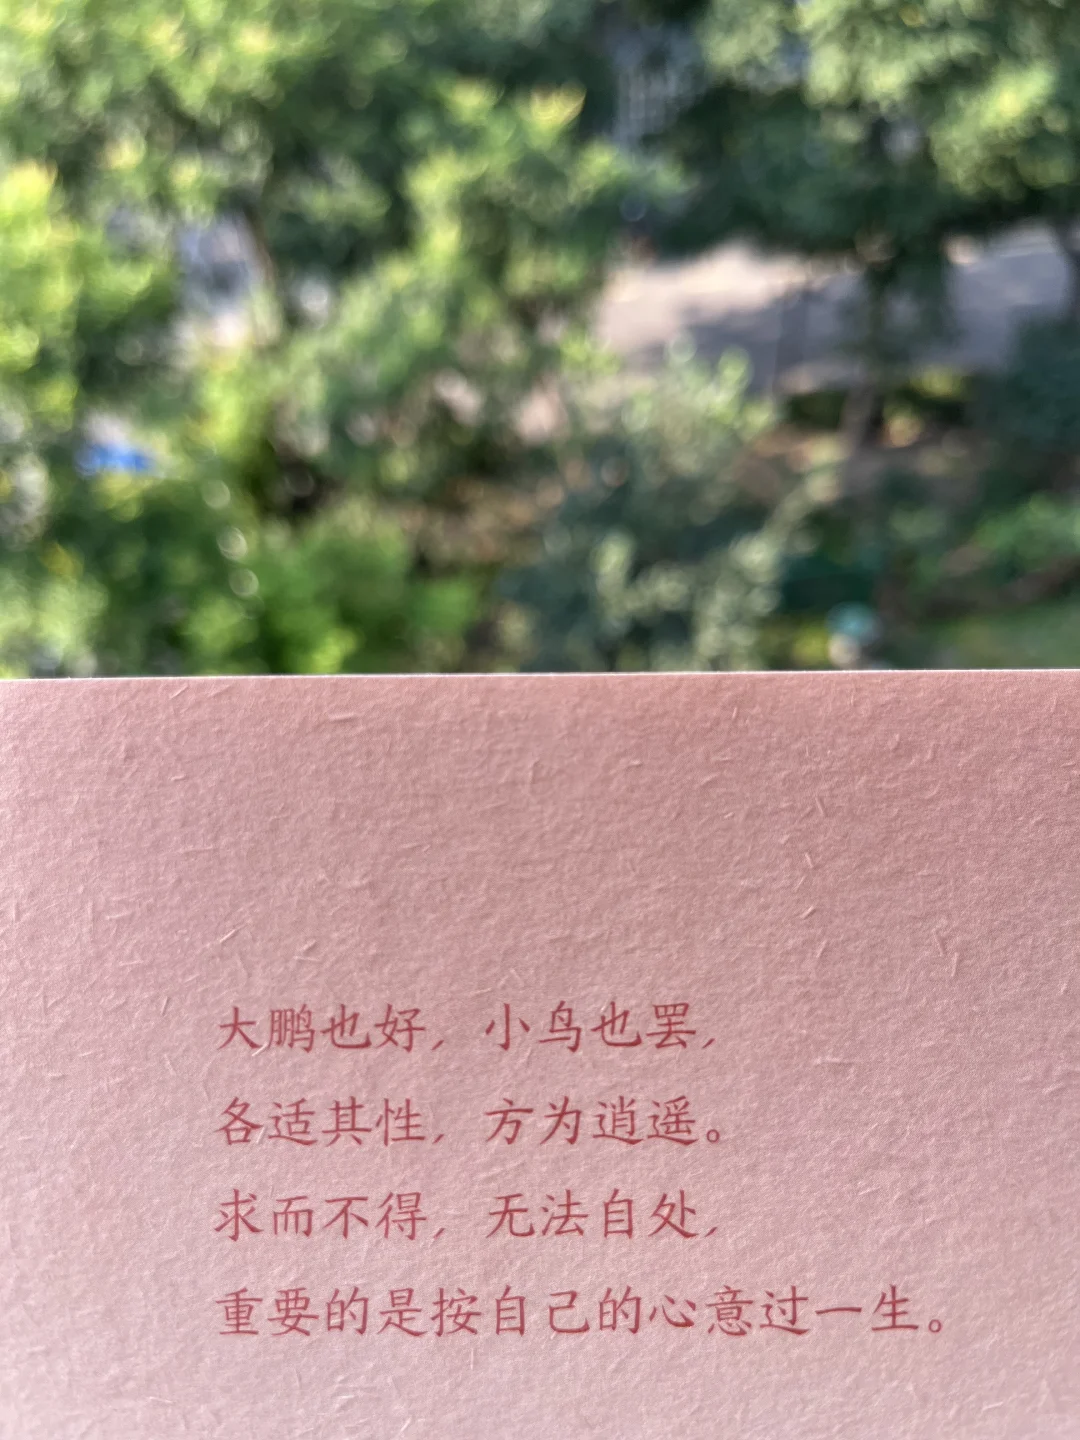 大鹏也好，小鸟也罢，
各适其性，方为逍遥。
求而不得，无法自处，
重要的是按自己的心意过一生。